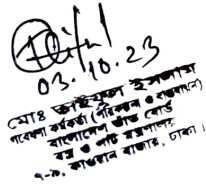 03.10.23
মোঃ আইনুল ইসলাম
গবেষণা কর্মকর্তা (পরিকল্পনা ও বাস্তবায়ন)
বাংলাদেশ তাঁত বোর্ড
বস্ত্র ও পাট মন্ত্রণালয়
কাওরান বাজার, ঢাকা।